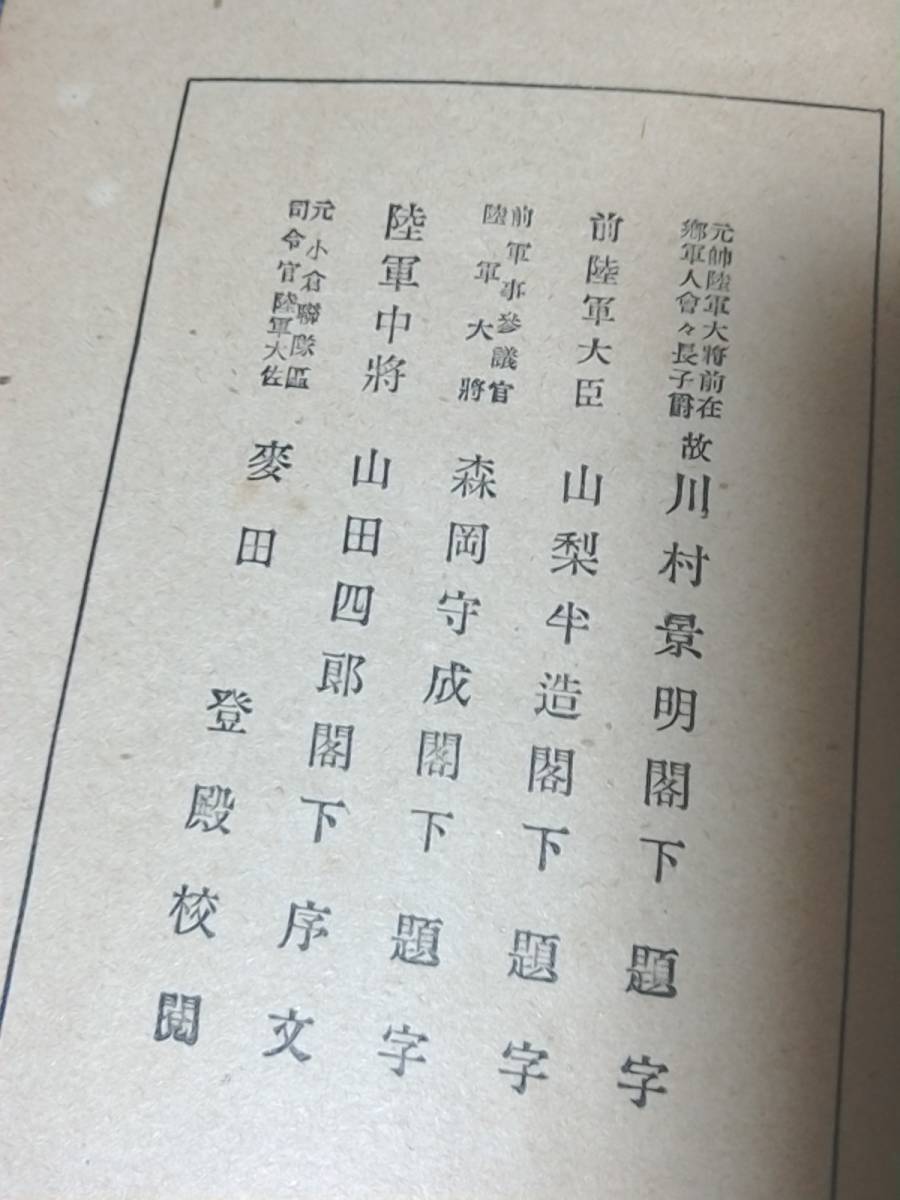 元帥陸軍大將前在
鄕軍人會々長子爵
故川村景明閣下題字
前陸軍大臣
山梨半造閣下題字
前軍事參議官
陸軍大將
森岡守成閣下題字
陸軍中將
山田四郎閣下序文
元小倉聯隊區
司令官陸軍大佐
麥田登殿校閲